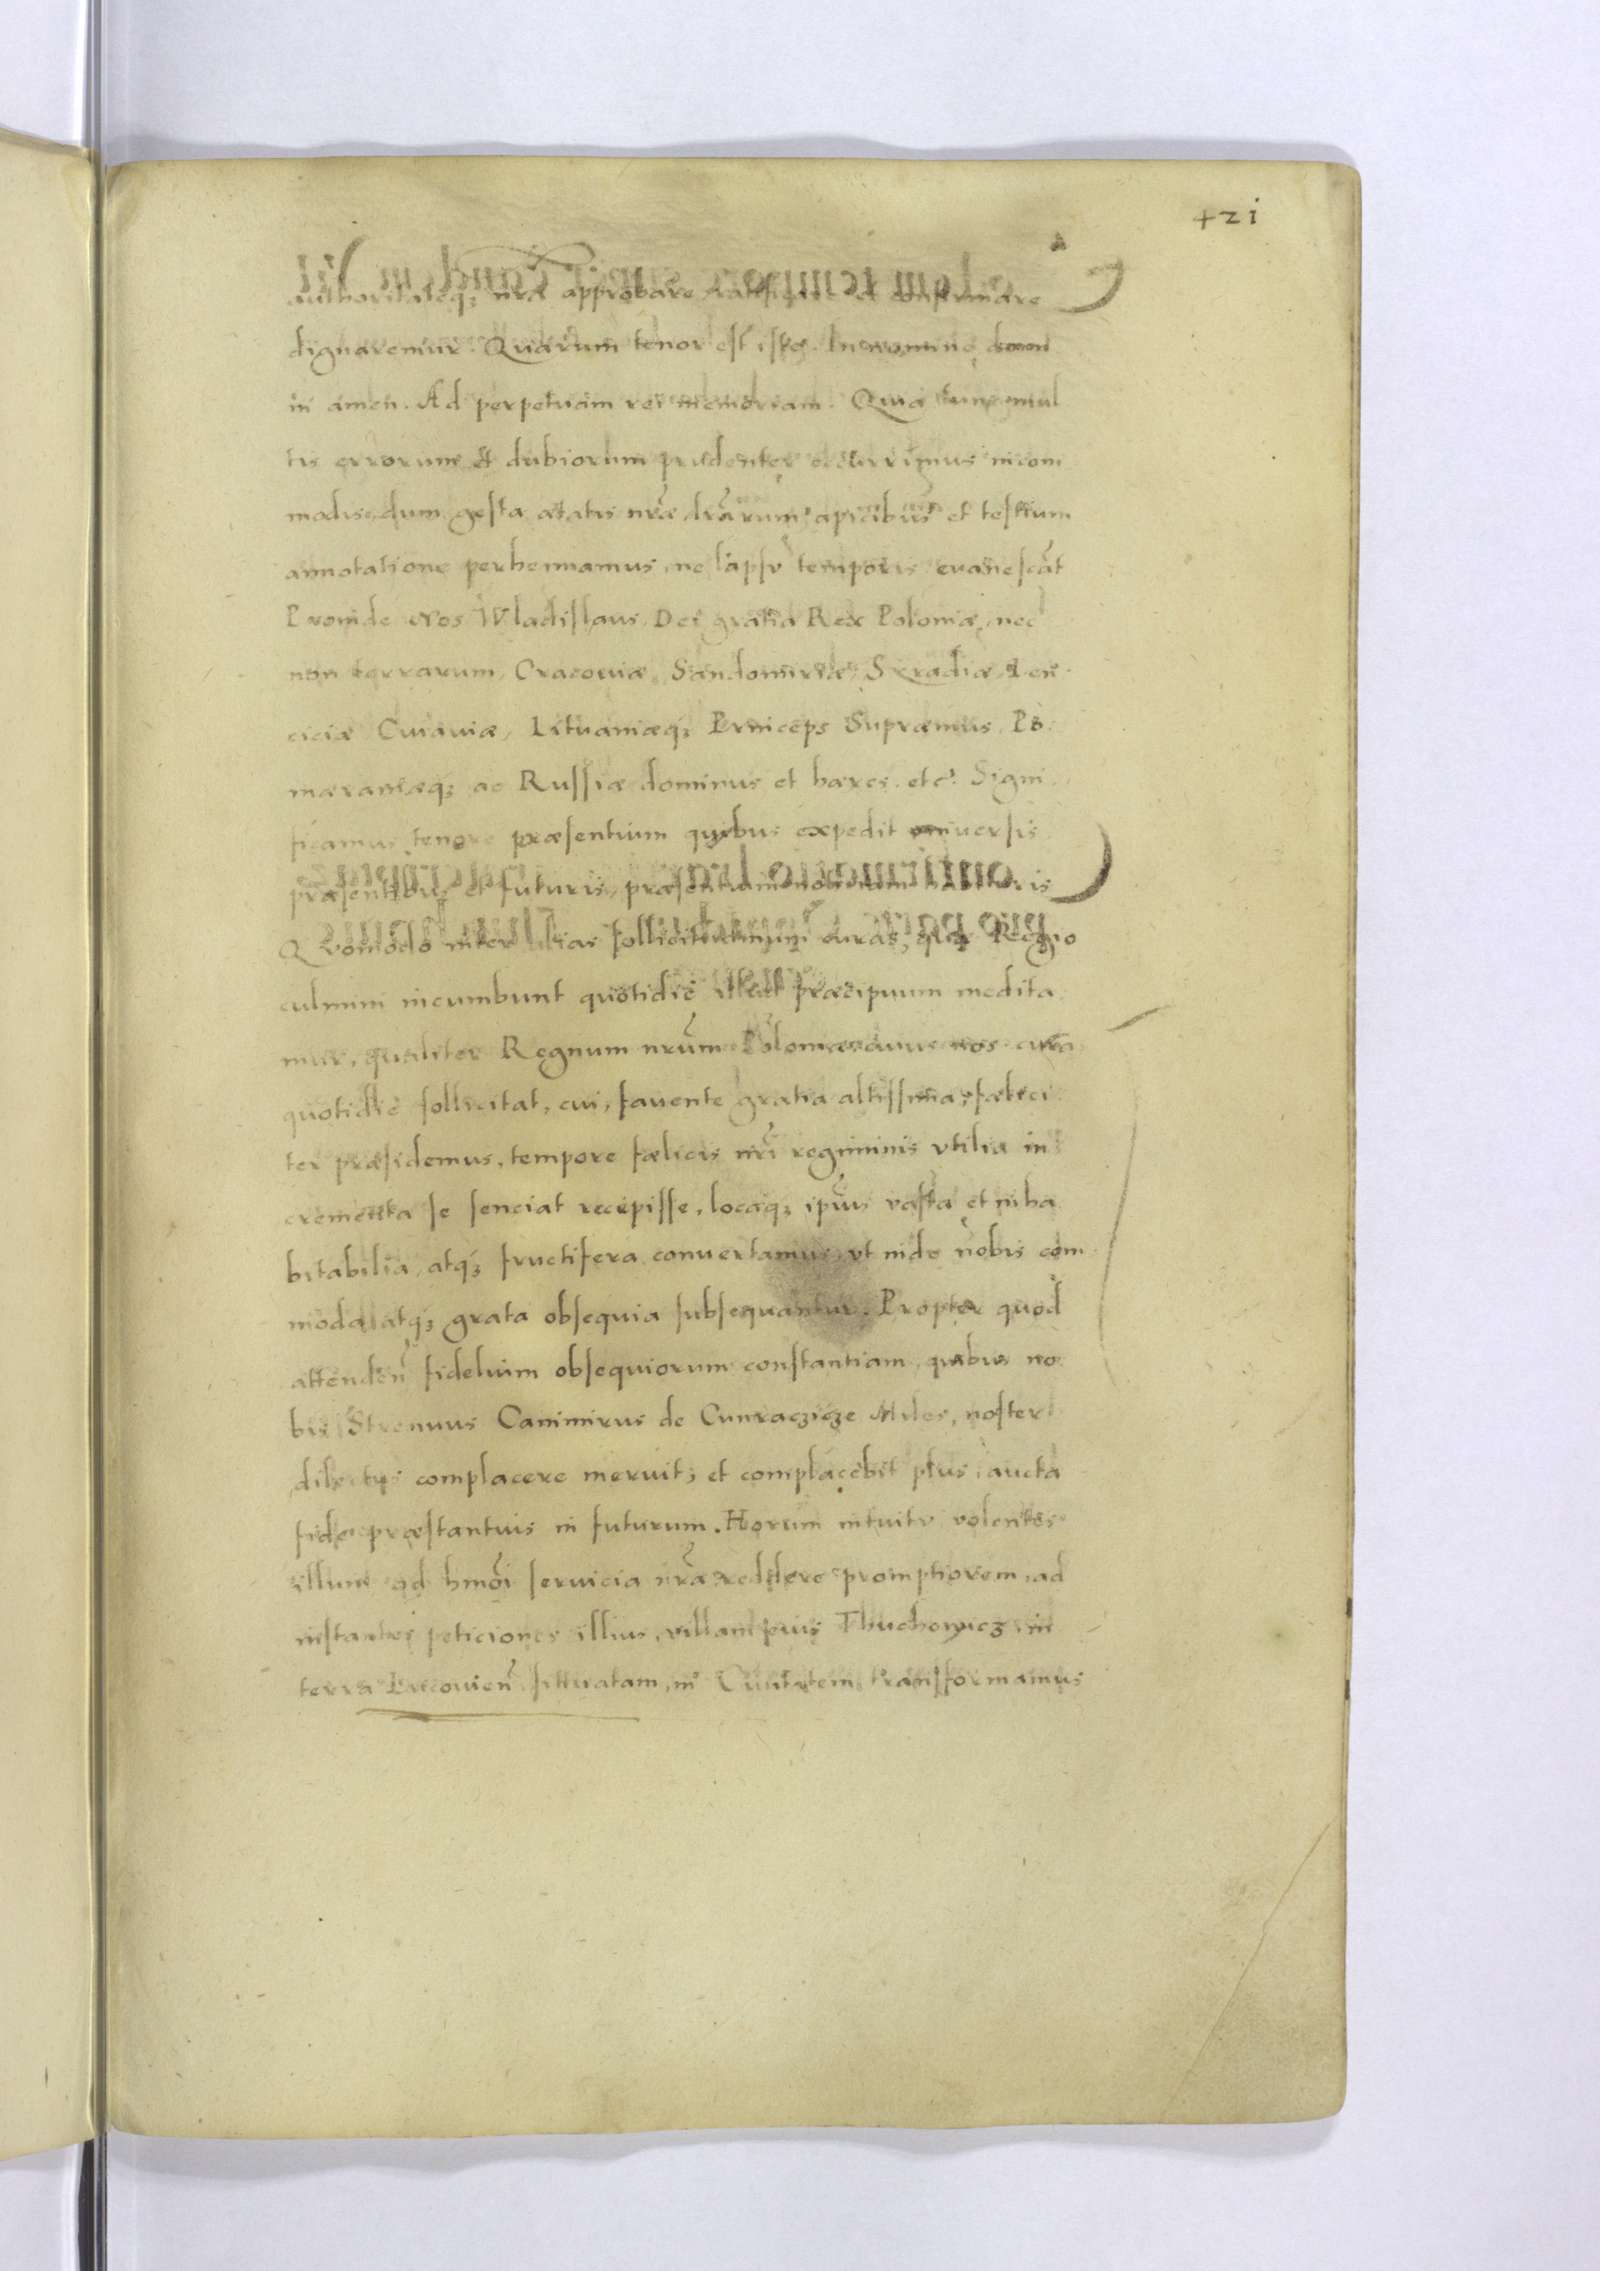 421
authoritateq₃ nrã approbare ratificare et confirmare
dignaremur. Quarum tenor est iste. In nomine domi
ni amen. Ad perpetuam rei memoriam. Quia tunc mul
tis errorum et dubiorum prudenter occurrimus incom
modis, dum gesta ætatis nræ lrãrum apicibus et testium
annotatione perhennamus, ne lapsu temporis euanescãt
Proinde Nos Wladislaus Dei gratia Rex Poloniæ, nec
non terrarum, Cracouiæ, Sandomiriæ, Syradiæ, Lan
ciciæ Cuiauiæ, Lituaniæq₃ Princeps Supræmus, Po
mæraniæq₃ ac Russiæ dominus et hæres. etc. Signi
ficamus tenore præsentium quibus expedit vniuersis
præsentibus et futuris, præsentium notitiam habituris
Quomodo inter alias sollicitudinum curas, quæ Regio
culmini incumbunt quotidie illud præcipuum medita
mur, qualiter Regnum nrũm Poloniæ cuius nos cura
quotidie sollicitat, cui, fauente gratia altissima, fæleci
ter præsidemus, tempore fælicis nri regiminis vtilia in
crementa se senciat recepisse, locaq₃ ipius vasta et inha
bitabilia, atq₃ fructifera conuertamus, vt inde nobis com
moda atq₃ grata obsequia subsequantur. Propter quod
attenden fidelium obsequiorum constantiam, quibus no
bis Strenuus Canimirus de Cunraczicze Miles, noster
dilectus complacere meruit, et complacebit plus, aucta
fide præstantius in futurum. Horum intuitu volentes
illum ad hmõi seruicia nrã reddere promptiorem, ad
instantes peticiones illius, villam suis Thuchowicz in
terra Lucouien sittuatam, in Ciuitatem transformamus